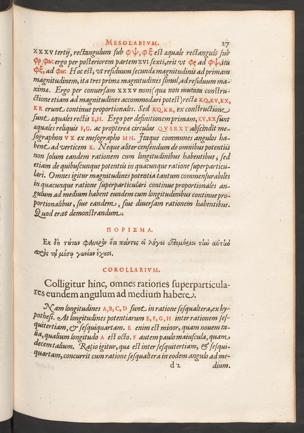 MESOLABIVM. 27
XXXV tertij, rectangulum sub ΦΨ, ΦΞ est æquale rectangulo sub
ergo per posteriorem partem XVI sexti, erit ut ΦΞ ad ΦΨ, ita
ΦΞ, ad Φω: Hoc est, ut residuum secundæ magnitudinis ad primam
magnitudinem, ita tres primæ magnitudines simul, ad residuum maxima. Ergo per conuersam XXXV noni (qua non mutatur constructio
etiam ad magnitudines accommodari potest) recta KQ, KV, KX,
KR erunt continue proportionales. Ad KQ, KR, ex constructione,
sunt æquales rectis E, H. Ergo per definitionem primam, KV, KX sunt
æquales reliquis F, G. ac propterea circulus QVSRXT abscindit mesographos
VX ex mesographo MN. Itaque communes angulus habent,
ad verticem K. Neque aliter censendum de omnibus potentiis
non solum eandem rationem cum longitudinibus habentibus, sed
etiam de quibuscunque potentiis in quacunque ratione superparticulari.
Omnes igitur magnitudines potentia tantum commensurabiles
in quacunque ratione superparticulari continue proportionales angulum
ad medium habent eundem cum longitudinibus continue proportionalibus,
siue eandem, siue diuersam rationem habentibus.
Quod erat demonstrandum.
ΠΟΡΙΣΜΑ.
Εκ δὴ τούτου φανερὸν ὅτι πάντες οἱ λόγοι ἐπιμόριοι τὴν αὐτὴν
πρὸς τῷ μέσῳ γωνίαν ἔχουσι.
COROLLARIVM.
Colligitur hinc, omnes rationes superparticulares
eundem angulum ad medium habere.
Nam longitudines A, B, C, D sunt in ratione sesqualtera, ex hypothesi.
At longitudines potentiarum E, F, G, H inter rationem sesquitertiam,
& sesquiquartam. E enim est minor, quam nouem talia,
qualium longitudo A est octo. F autem paulo maiuscula, quam
decem tadium. Ratio igitur, qua est inter sesquitertiam, & sesquiquartam,
concurrit cum ratione sesqualtera in eodem angulo ad me-
d 2 dium.